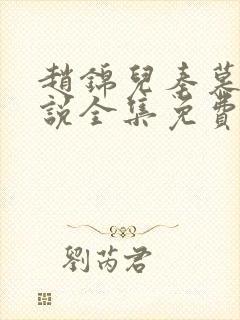 趙錦兒秦慕
說全集免費
劉芮君